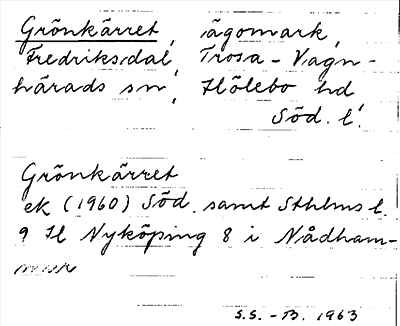 Grönkärret, ägomark,
Fredriksdal, Trosa-Vagn-
härads sn, Hölebo hd,
Söd. l.
Grönkärret
ek (1960) Söd. samt Sthlms l.
9 H Nyköping 8 i Nådham-
S.S.-B. 1963